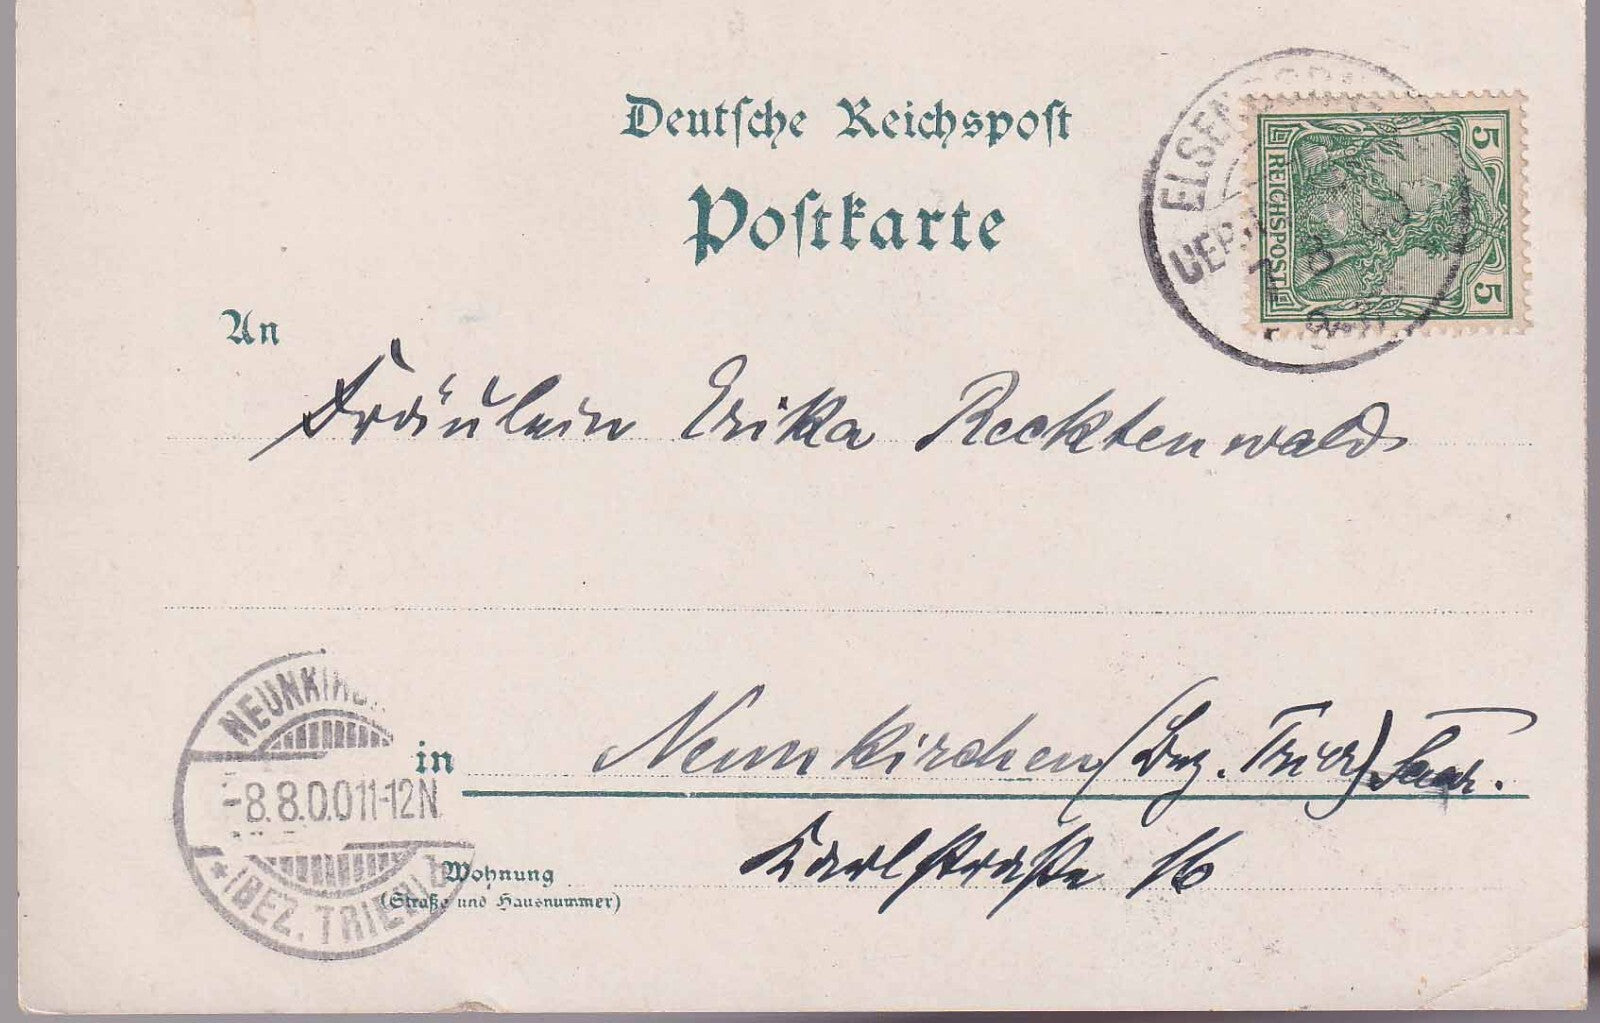 Deutsche Reichspost
Postkarte
ELSENBORN
7 8 00
REICHSPOST
5
5
An
Fräulein Erika Recktenwald
in Neunkirchen (Bez. Trier) Saar.
Wohnung Karlstraße 16
(Straße und Hausnummer)
NEUNKIRCH
-8.8.00 11-12N
* (BEZ. TRIER) b